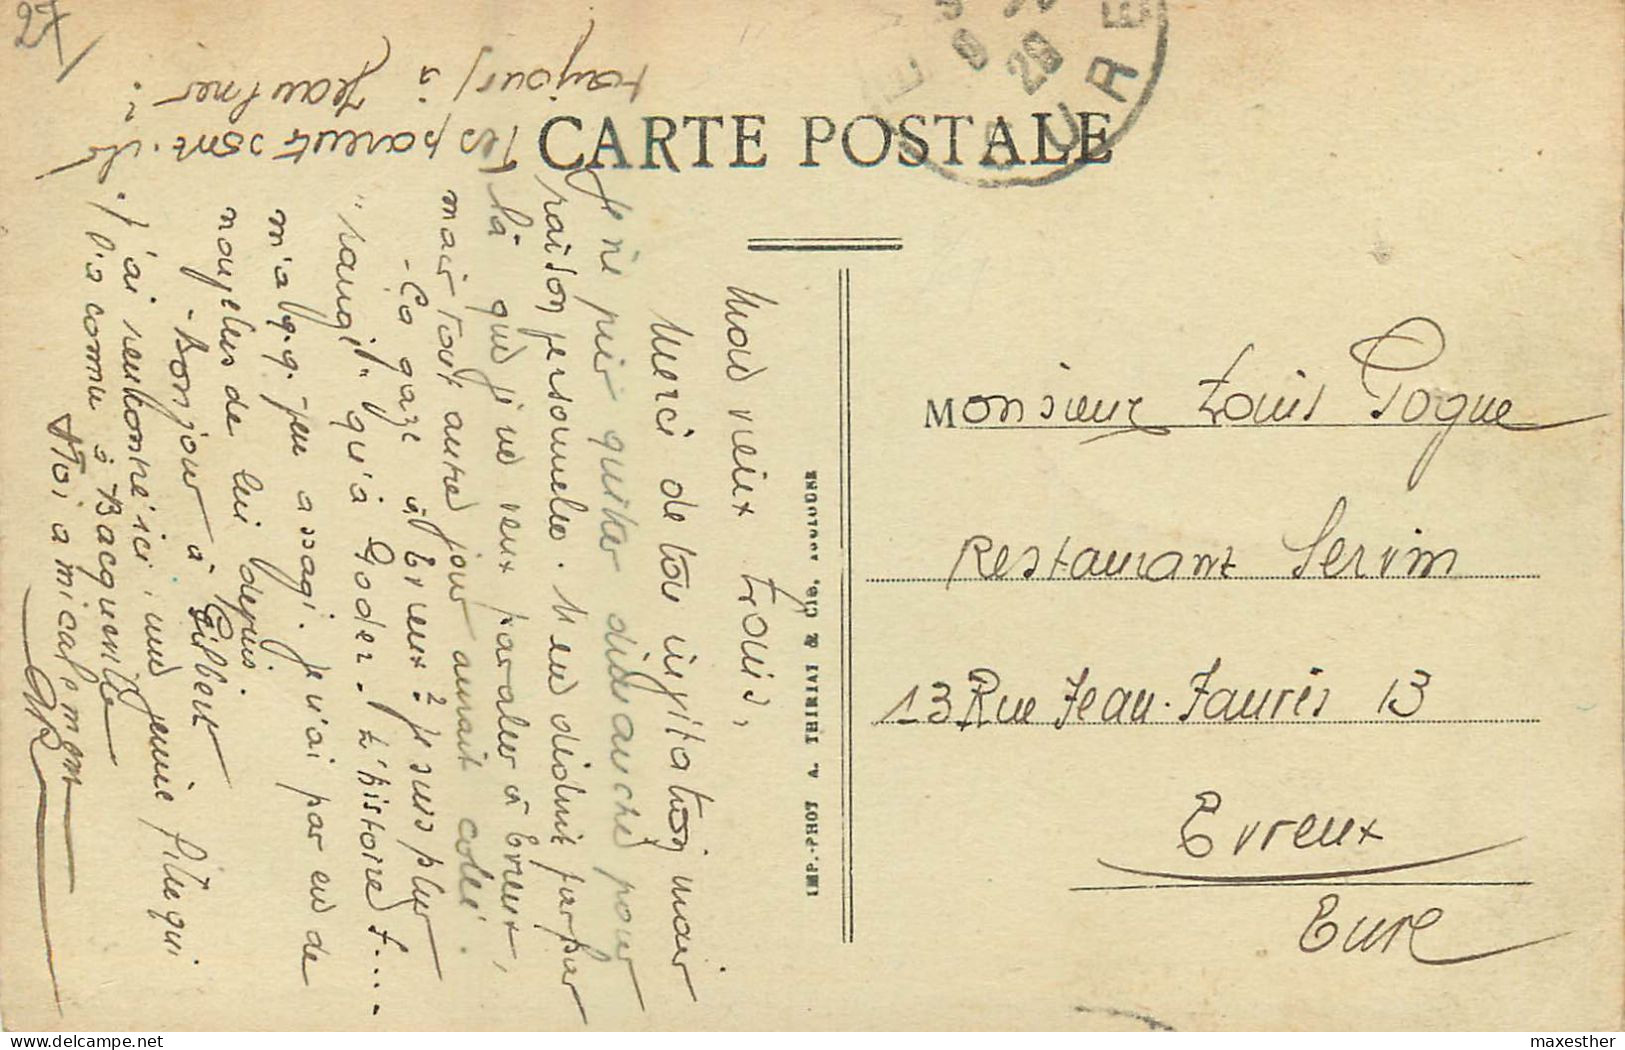 27
CARTE POSTALE
EURE
Mon vieux Louis,
Merci de ton invitation mais
je ne puis quitter dimanche pour
raison personnelle. Il en déduit pas par
là que je ne veux pas aller à Evreux,
mais tout autre jour aurait collé.
- Ca gaze à Evreux ? Je suis plus
"rangé" qu'à Goder. L'histoire f....
m'a qq. peu assagi. Je n'ai pas eu de
nouvelles de lui depuis.
- Bonjour à Gilbert
J'ai rencontré ici, une jeune fille qui
l'a connu à Bacqueville
Toi amicalement
Tes parents sont-ils
toujours à Jeaufmer ?
IMP.-PHOT A. THIRIAT & Cie, TOULOUSE
Monsieur Louis Pogue
Restaurant Servin
13 Rue Jean-Jaurès 13
Evreux
Eure
maxesther
delcampe.net